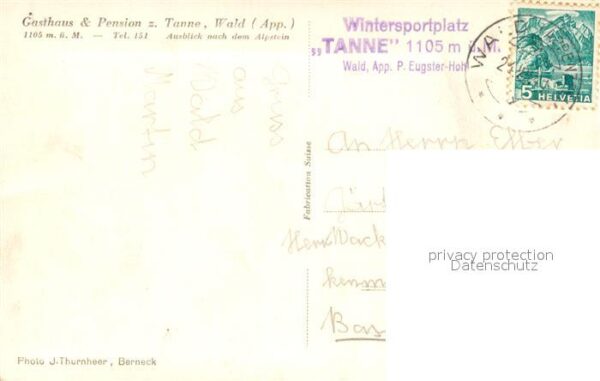 Gasthaus & Pension z. Tanne, Wald (App.)
1105 m. ü. M. — Tel. 151 Ausblick nach dem Alpstein
Wintersportplatz
„TANNE" 1105 m ü. M.
Wald, App. P. Eugster-Hohl
WA
5 HELVETIA
Gruss
aus
Wald
Martin
Fabrication Suisse
An Herrn Etter
Herr Wack
Bas
privacy protection
Datenschutz
Photo J. Thurnheer, Berneck